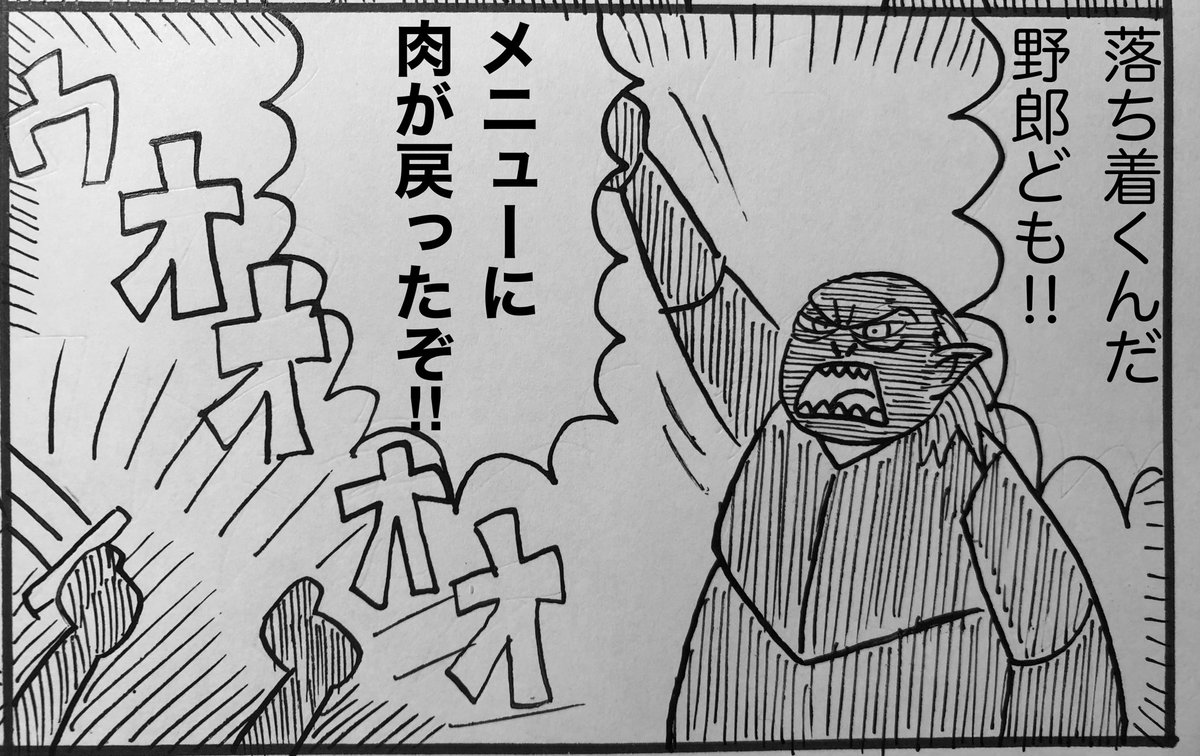 落ち着くんだ
野郎ども!!
メニューに
肉が戻ったぞ!!
ウオオオオ